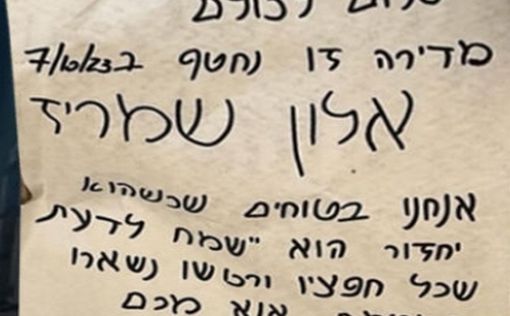 שלום לכולם
מדירה זו נחטף ב 7/10/23
אלון שמריז
אנחנו בטוחים שכשהוא
יחזור הוא "שמח לדעת
שכל חפציו ורכושו נשארו
אנא מכם